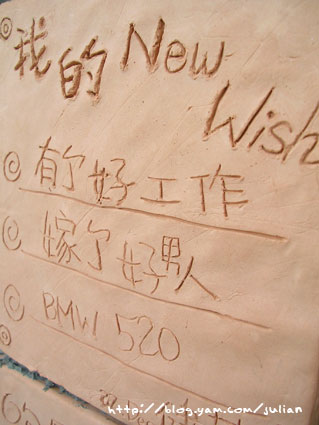 我的 New
Wish
有ㄍ好工作
嫁ㄍ好男人
BMW 520
http://blog.yam.com/julian